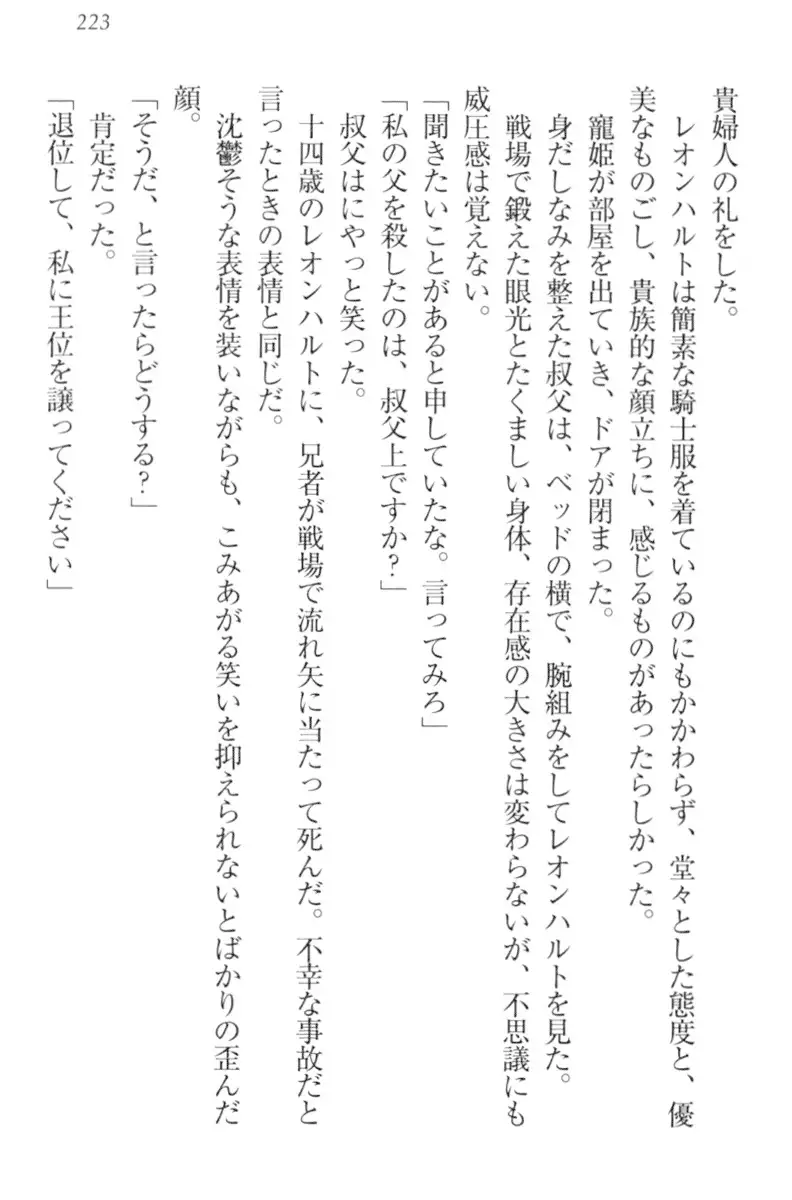 223
貴婦人の礼をした。
レオンハルトは簡素な騎士服を着ているのにもかかわらず、堂々とした態度と、優
美なものごし、貴族的な顔立ちに、感じるものがあったらしかった。
寵姫が部屋を出ていき、ドアが閉まった。
身だしなみを整えた叔父は、ベッドの横で、腕組みをしてレオンハルトを見た。
戦場で鍛えた眼光とたくましい身体、存在感の大きさは変わらないが、不思議にも
威圧感は覚えない。
「聞きたいことがあると申していたな。言ってみろ」
「私の父を殺したのは、叔父上ですか?」
叔父はにやっと笑った。
十四歳のレオンハルトに、兄者が戦場で流れ矢に当たって死んだ。不幸な事故だと
言ったときの表情と同じだ。
沈鬱そうな表情を装いながらも、こみあがる笑いを抑えられないとばかりの歪んだ
顔。
「そうだ、と言ったらどうする?」
肯定だった。
「退位して、私に王位を譲ってください」